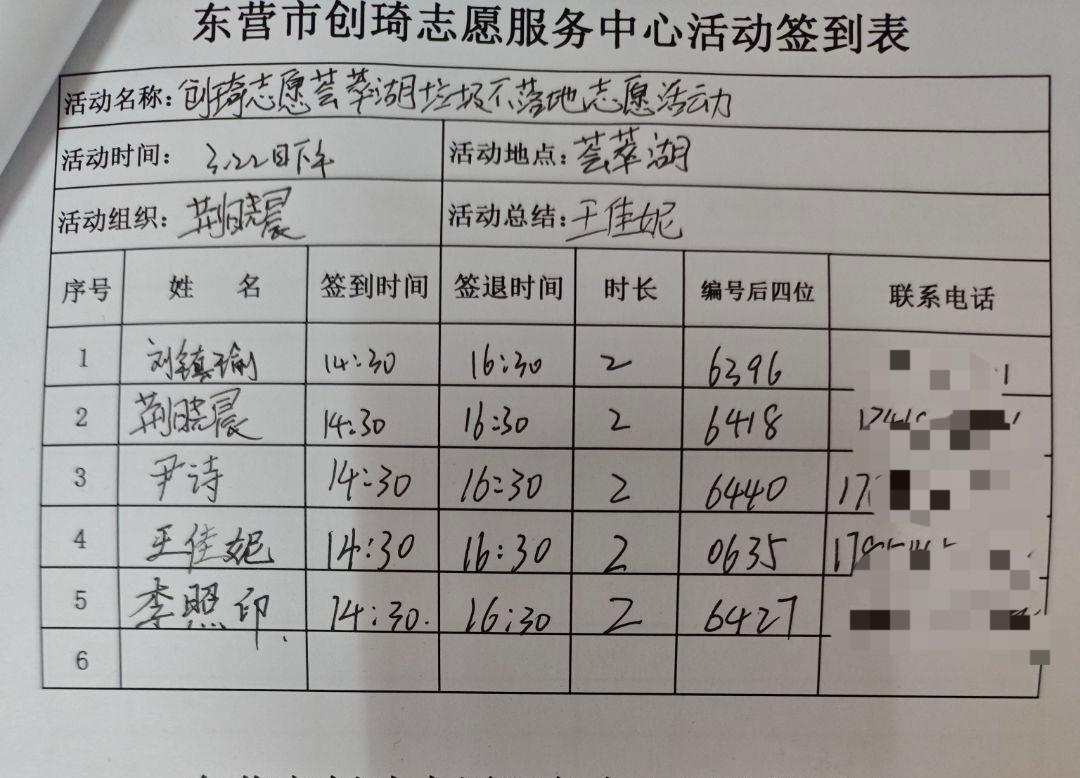 东营市创琦志愿服务中心活动签到表
活动名称：创琦志愿荟萃湖垃圾不落地志愿活动
活动时间： 3.22日下午 活动地点：荟萃湖
活动组织：荆晓晨 活动总结：王佳妮
序号 姓 名 签到时间 签退时间 时长 编号后四位 联系电话
1 刘镇瑜 14:30 16:30 2 6396
2 荆晓晨 14:30 16:30 2 6418
3 尹诗 14:30 16:30 2 6440
4 王佳妮 14:30 16:30 2 0635
5 李照印 14:30. 16:30 2 6427
6